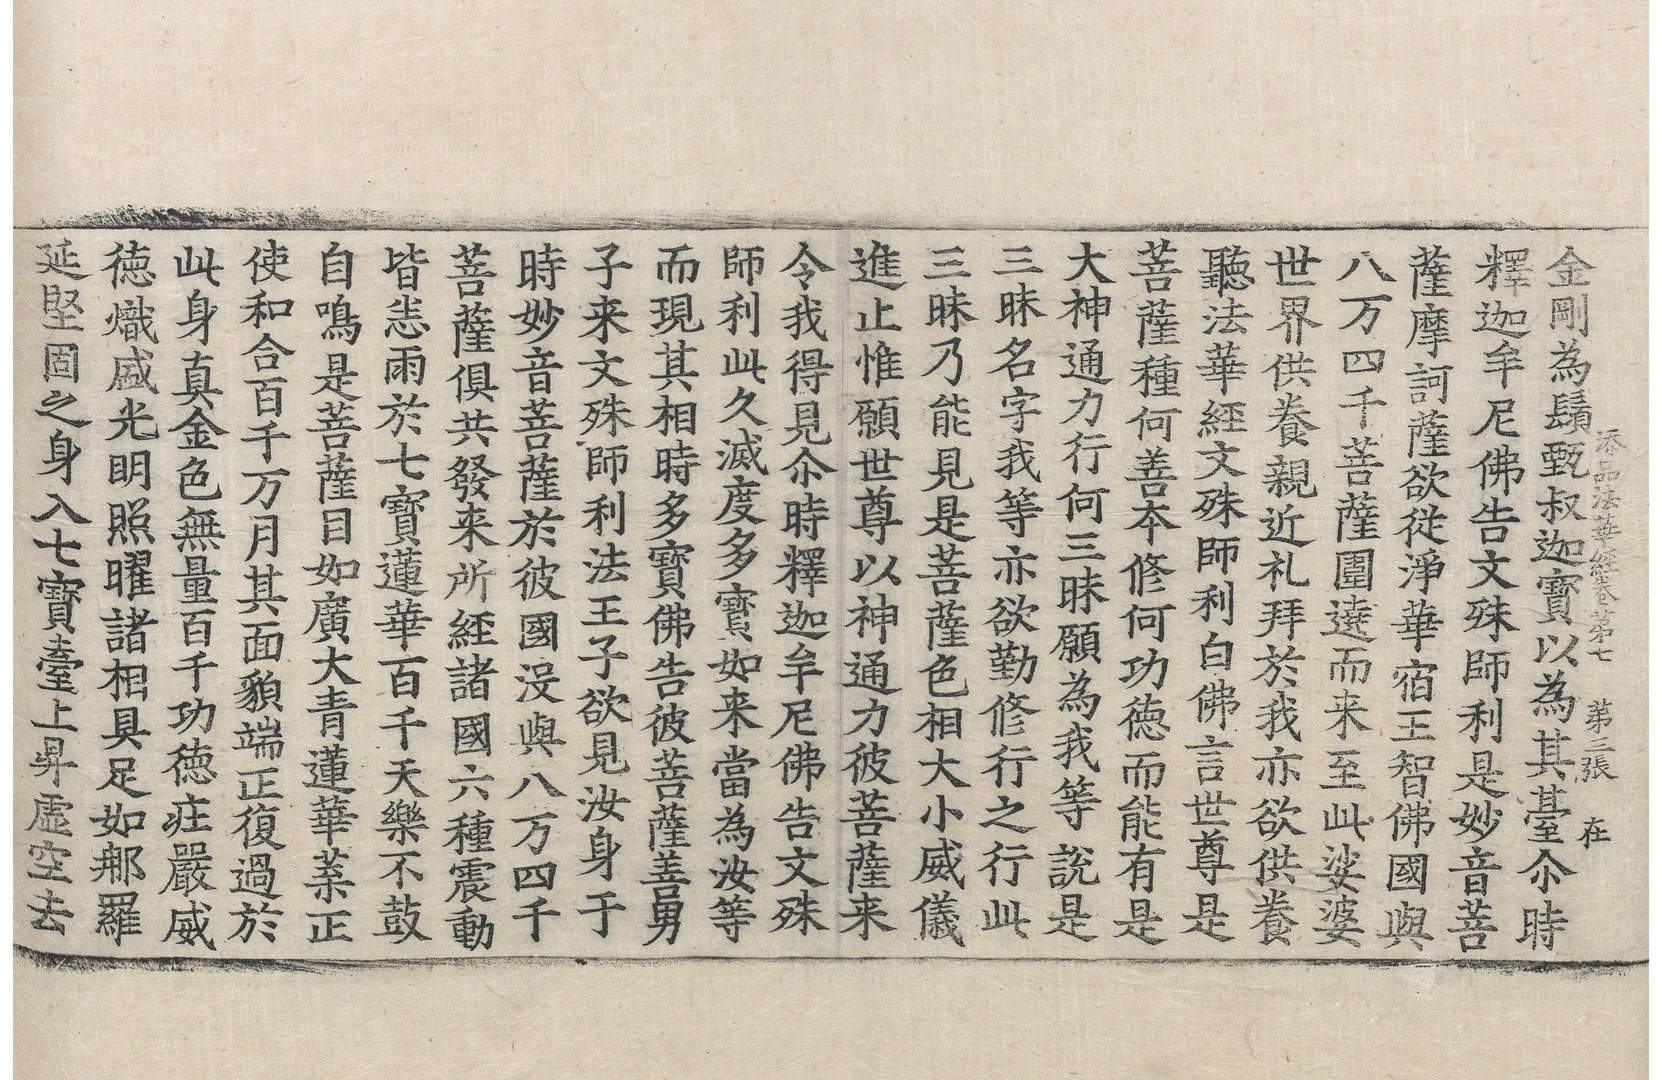 添品法華經卷第七　第三張　在
金剛為鬚甄叔迦寶以為其臺尒時
釋迦牟尼佛告文殊師利是妙音菩
薩摩訶薩欲從淨華宿王智佛國與
八万四千菩薩圍遶而来至此娑婆
世界供養親近礼拜於我亦欲供養
聽法華經文殊師利白佛言世尊是
菩薩種何善夲修何功德而能有是
大神通力行何三昧願為我等說是
三昧名字我等亦欲勤修行之行此
三昧乃能見是菩薩色相大小威儀
進止惟願世尊以神通力彼菩薩来
令我得見尒時釋迦牟尼佛告文殊
師利此久滅度多寶如来當為汝等
而現其相時多寶佛告彼菩薩善男
子来文殊師利法王子欲見汝身于
時妙音菩薩於彼國没與八万四千
菩薩俱共發来所經諸國六種震動
皆悉雨於七寶蓮華百千天樂不鼓
自鳴是菩薩目如廣大青蓮華葉正
使和合百千万月其面貌端正復過於
此身真金色無量百千功德莊嚴威
德熾盛光明照曜諸相具足如那羅
延堅固之身入七寶臺上昇虛空去